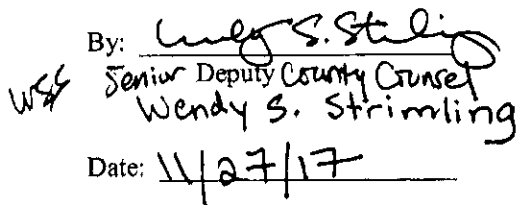 By: Wendy S. Strimling
WSS Senior Deputy County Counsel
Wendy S. Strimling
Date: 11/27/17